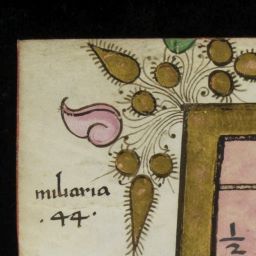 miliaria
· 44 ·
1
2